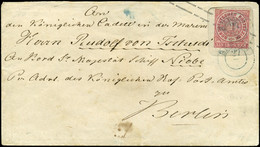 An
den Königlichen Cadett in der Marine
Herrn Rudolf von Tschudi
An Bord Sr. Majestät Schiff Niobe
Per Adr. des Königlichen Hof-Post-Amtes
zu
Berlin